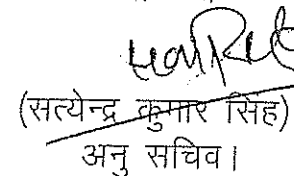 (सत्येन्द्र कुमार सिंह)
अनु सचिव।